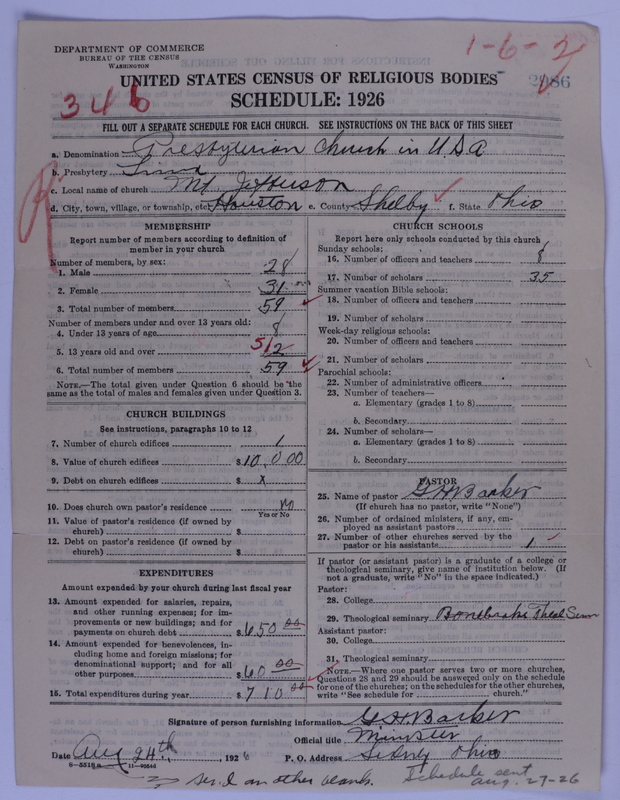 DEPARTMENT OF COMMERCE
BUREAU OF THE CENSUS
WASHINGTON
1-6-2
2986
UNITED STATES CENSUS OF RELIGIOUS BODIES
346
SCHEDULE: 1926
FILL OUT A SEPARATE SCHEDULE FOR EACH CHURCH. SEE INSTRUCTIONS ON THE BACK OF THIS SHEET
a. Denomination Presbyterian Church in U.S.A
b. Presbytery
c. Local name of church Mt Jefferson
d. City, town, village, or township, etc. Houston e. County Shelby f. State Ohio
MEMBERSHIP
Report number of members according to definition of
member in your church
Number of members, by sex:
1. Male 28
2. Female 31
3. Total number of members 59
Number of members under and over 13 years old:
4. Under 13 years of age 8
5. 13 years old and over 512
6. Total number of members 59
NOTE.—The total given under Question 6 should be the
same as the total of males and females given under Question 3.
CHURCH BUILDINGS
See instructions, paragraphs 10 to 12
7. Number of church edifices 1
8. Value of church edifices $10,000
9. Debt on church edifices $ x
10. Does church own pastor's residence no
Yes or No
11. Value of pastor's residence (if owned by
church) $
12. Debt on pastor's residence (if owned by
church) $
EXPENDITURES
Amount expended by your church during last fiscal year
13. Amount expended for salaries, repairs,
and other running expenses; for im-
provements or new buildings; and for
payments on church debt $650 00
14. Amount expended for benevolences, in-
cluding home and foreign missions; for
denominational support; and for all
other purposes $60 00
15. Total expenditures during year $710 00
CHURCH SCHOOLS
Report here only schools conducted by this church
Sunday schools:
16. Number of officers and teachers 8
17. Number of scholars 35
Summer vacation Bible schools:
18. Number of officers and teachers
19. Number of scholars
Week-day religious schools:
20. Number of officers and teachers
21. Number of scholars
Parochial schools:
22. Number of administrative officers
23. Number of teachers—
a. Elementary (grades 1 to 8)
b. Secondary
24. Number of scholars—
a. Elementary (grades 1 to 8)
b. Secondary
PASTOR
25. Name of pastor G H Barker
(If church has no pastor, write "None")
26. Number of ordained ministers, if any, em-
ployed as assistant pastors
27. Number of other churches served by the
pastor or his assistants 1
If pastor (or assistant pastor) is a graduate of a college or
theological seminary, give name of institution below. (If
not a graduate, write "No" in the space indicated.)
Pastor:
28. College
29. Theological seminary Bonebrake Theol Sem
Assistant pastor:
30. College
31. Theological seminary
NOTE.—Where one pastor serves two or more churches,
Questions 28 and 29 should be answered only on the schedule
for one of the churches; on the schedules for the other churches,
write "See schedule for church."
Signature of person furnishing information G H Barker
Official title Minister
Date Aug 24th, 1926 P. O. Address Sidney Ohio
8—5518a 11—9054d
send another blank. Schedule sent
Aug. 27-26